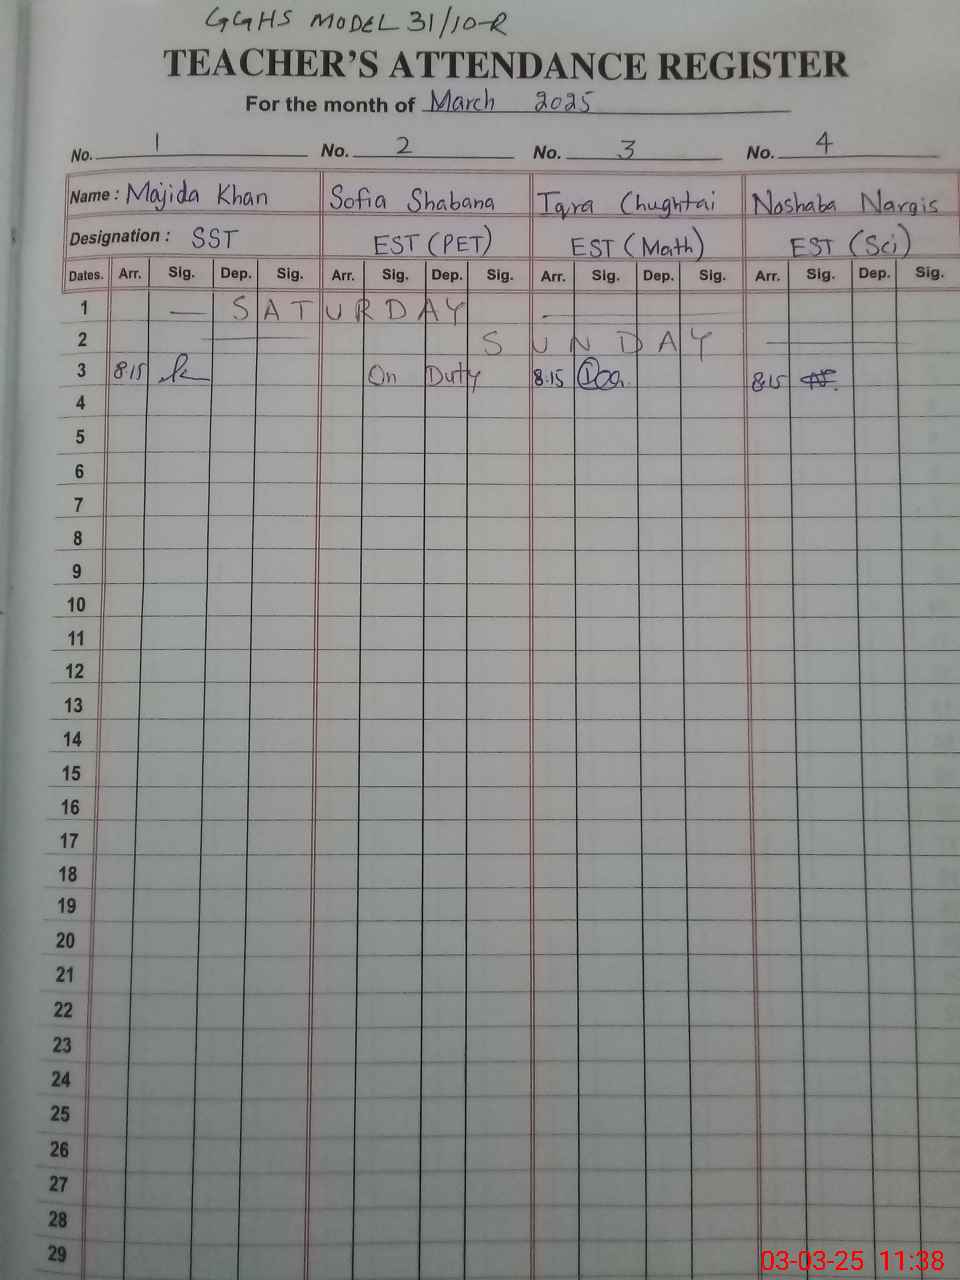 GGHS MODEL 31/10-R
TEACHER'S ATTENDANCE REGISTER
For the month of March 2025
No. 1 No. 2 No. 3 No. 4
Name : Majida Khan Sofia Shabana Iqra Chughtai Noshaba Nargis
Designation : SST EST (PET) EST (Math) EST (Sci)
Dates. Arr. Sig. Dep. Sig. Arr. Sig. Dep. Sig. Arr. Sig. Dep. Sig. Arr. Sig. Dep. Sig.
1 SATURDAY
2 SUNDAY
3 8:15 On Duty 8:15 8:15
4
5
6
7
8
9
10
11
12
13
14
15
16
17
18
19
20
21
22
23
24
25
26
27
28
29
03-03-25 11:38